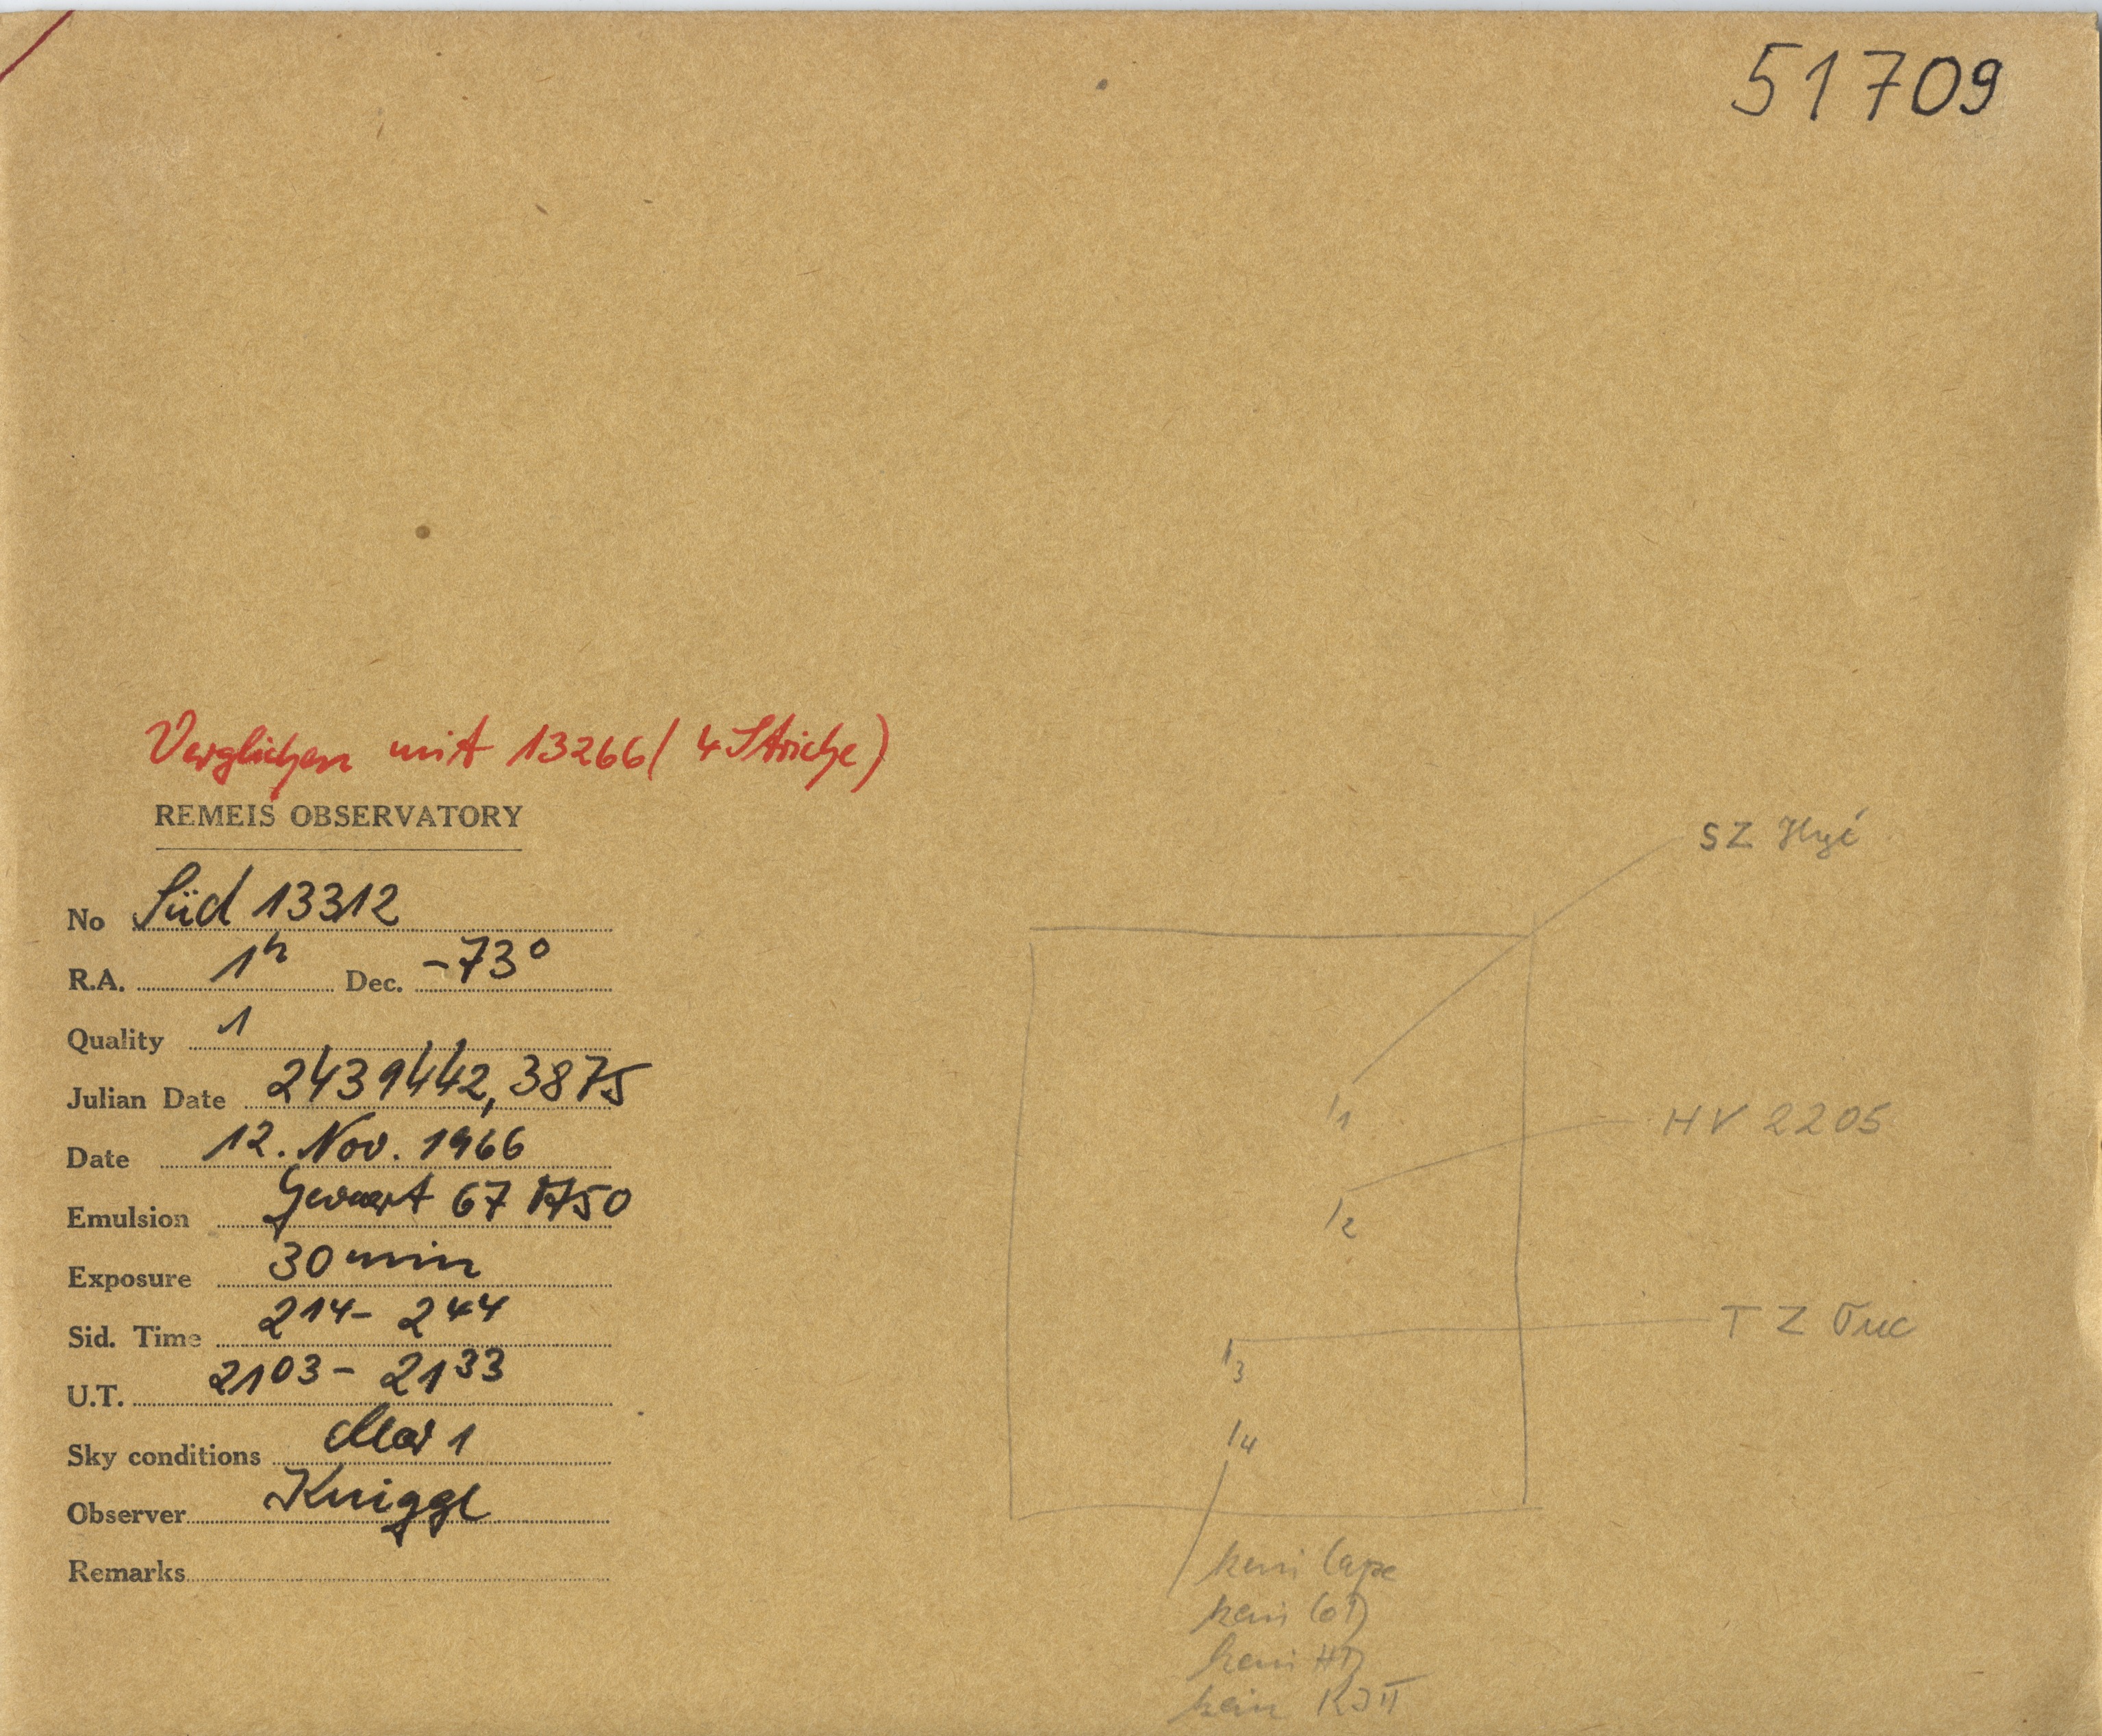 51709
Verglichen mit 13266 (4 Striche)
REMEIS OBSERVATORY
No Süd 13312
R.A. 1h Dec. -73°
Quality 1
Julian Date 2439442,3875
Date 12. Nov. 1966
Emulsion Gevaert 67 A50
Exposure 30 min
Sid. Time 2 14 - 2 44
U.T. 21 03 - 21 33
Sky conditions klar 1
Observer Knigge
Remarks
SZ Hyi
1
HV 2205
2
TZ Tuc
3
4
kein Cape
kein CoD
kein HD
kein